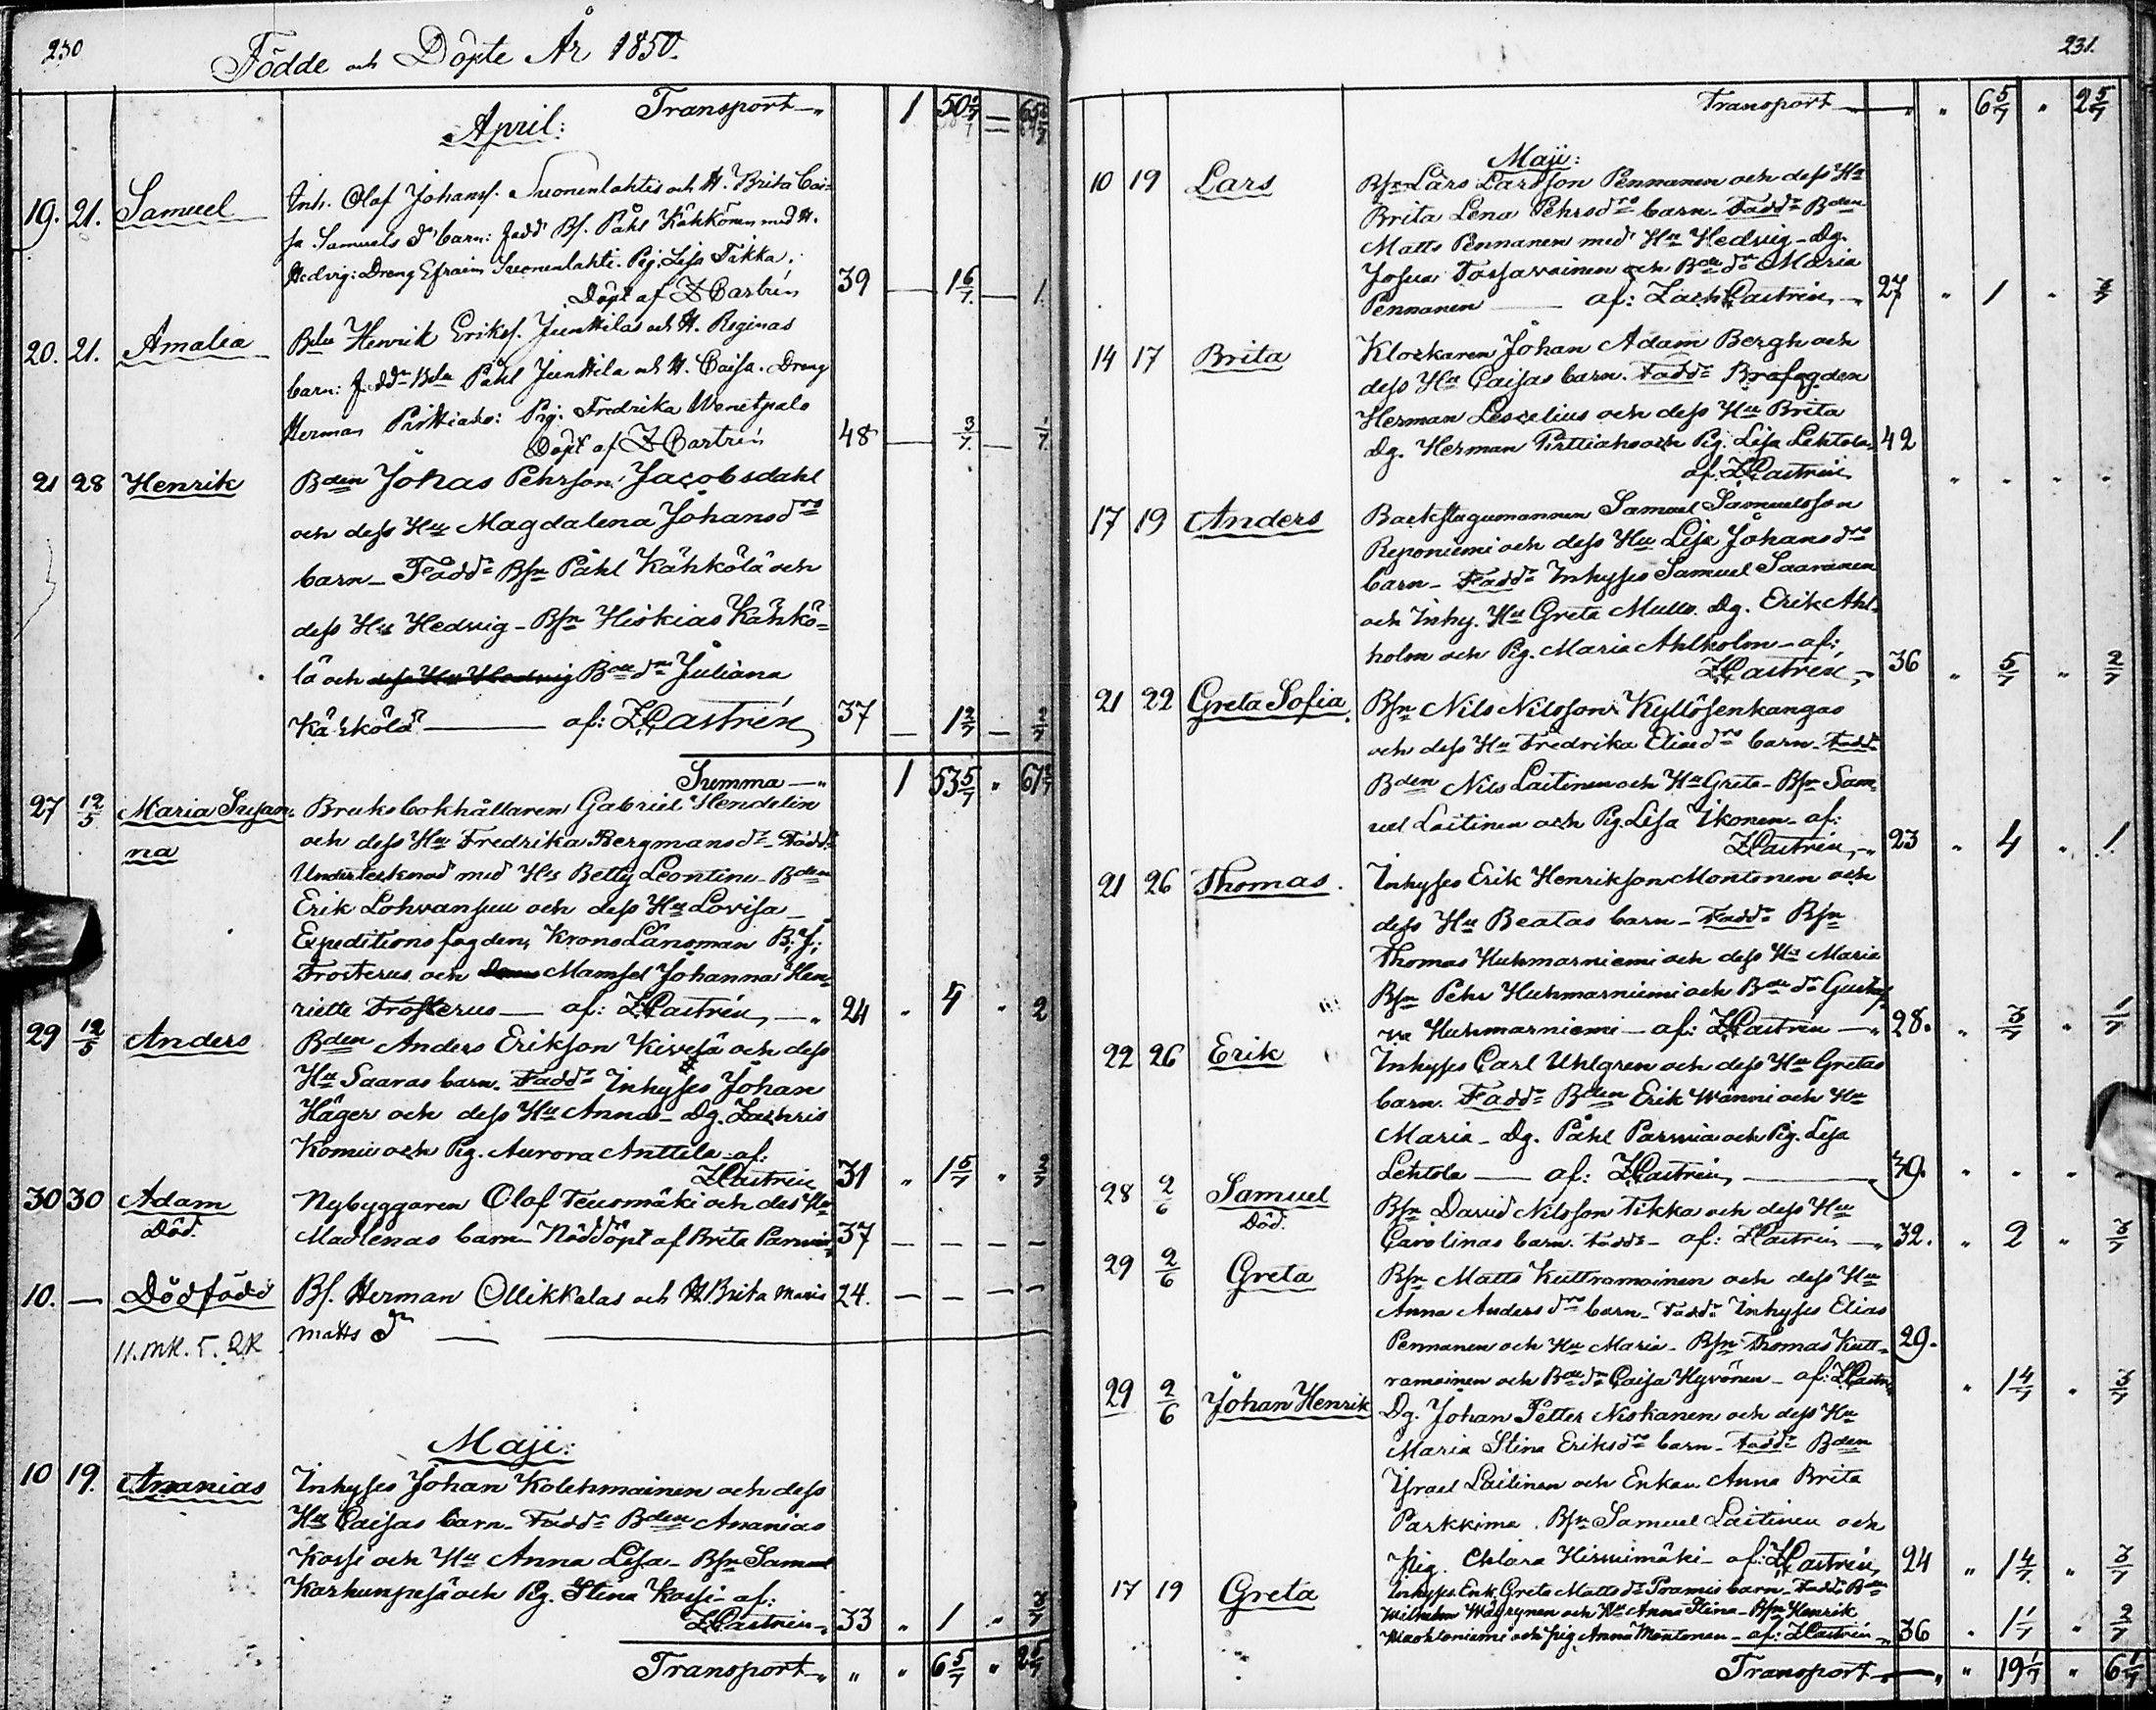 230
Födde och Döpte År 1850.
Transport —„ 1 50 6/7 —
April:
19. 21. Samuel Inh. Olof Johanss. Suonenlahtis och H. Brita Cai-
sa Samuels dr barn: Fadd. Bs. Påhl Kähkönen med H.
Hedvig: Dreng Efraim Suonenlahti. Pig. Lisa Tikka.
Döpt af Z Castrén 39 — 1 6/7 — 1.
20. 21. Amalia Bden Henrik Erikss. Junttilas och H. Reginas
barn: Fddr Bden Påhl Junttila och H. Caisa. Dreng
Herman Pirttiaho: Pig: Fredrika Wenetpalo
Döpt af Z Castrén 48 — 3/7 — 1/7
21 28 Henrik Bden Johas Pehrson Jacobsdahl
och dess Hu Magdalena Johansdrs
barn — Faddr Bsn Påhl Kähkölä och
dess Hu Hedvig — Bsn Hiskias Kähkö=
lä och dess Hu Hedvig Bdedn Juliana
Kähkölä — af: Z Castrén 37 — 1 2/7 — 2/7
Summa —„ 1 53 5/7 „
27 12/5 Maria Susan= Bruksbokhållaren Gabriel Hendelin
na och dess Hu Fredrika Bergmansdr — Fadd:
Undertecknad med Hu Betty Leontine — Bden
Erik Lohvansuu och dess Hu Lovisa —
Expeditionsfogden, Krons Länsman B: J:
Frosterus och Mamsel Johanna Hen=
riette Frosterus — af: Z Castrén, —„ 24 „ 4 „ 2
29 12/5 Anders Bden Anders Erikson Kivesä och dess
Hu Saaras barn. Faddr Inhyses Johan
Häger och dess Hu Anna — Dg. Zachris
Komu och Pg. Aurora Anttila — af:
Z Castrén 31 „ 1 5/7 „ 2/7
30 30 Adam Nybyggaren Olof Teusomäki och des Hu
Död. Madlenas barn Nöddöpt af Brita Parvia 37 — — — —
10. — Dödfödd Bs. Herman Ollikkalas och H. Brita Maria 24. — — — —
Matts dr —
Maji:
10 19. Ananias Inhyses Johan Kolehmainen och dess
Hu Caisas barn — Faddr Bden Ananias
Kosse och Hu Anna Lisa — Bsn Samuel
Karhunpesä och Pg. Stina Kosse — af:
Z Castrén —„ 33 „ 1 „ 3/7
Transport —„ „ „ 6 5/7 „ 2 5/7
231.
Transport — „ „ 6 5/7 „ 2 5/7
Maji:
10 19 Lars Bsn Lars Larsson Pennanen och dess Hu
Brita Lena Pehrsdrs barn — Faddr Bden
Matts Pennanen med Hu Hedvig — Dg.
Josua Tossavainen och Bdedn Maria
Pennanen — af: Zach Castrén —„ 27 „ 1 „ 3/7
14 17 Brita Klockaren Johan Adam Bergh och
dess Hu Caisas barn. Faddr Brofogden
Herman Lescelius och dess Hu Brita
Dg. Herman Pirttiaho och Pig. Lisa Lehtola, 42
af: Z Castrén „ „ „ „
17 19 Anders Backstugumannen Samuel Samuelsson
Reponiemi och dess Hu Lisa Johansdrs
barn — Faddr Inhyses Samuel Saaranen
och Inhy. Hu Greta Mullo. Dg. Erik Ahl-
holm och Pig. Maria Ahlholm — af:
Z Castrén —„ 36 „ 5/7 „ 2/7
21 22 Greta Sofia Bsn Nils Nilsson Kyllösenkangas
och dess Hu Fredrika Eliædrs barn — Faddr
Bden Nils Laitinen och Hu Greta — Bsn Sam=
uel Laitinen och Pg. Lisa Ikonen — af:
Z Castrén —„ 23 „ 4 „ 1
21 26 Thomas. Inhyses Erik Henrikson Montonen och
dess Hu Beatas barn — Faddr Bsn
Thomas Huhmarniemi och dess Hu Maria
Bsn Pehr Huhmarniemi och Bdedr Gusta=
va Huhmarniemi — af: Z Castrén —„ 28. „ 3/7 „ 1/7
22 26 Erik Inhyses Carl Uhlgren och dess Hu Gretas
barn. Faddr Bden Erik Wänni och Hu
Maria — Dg. Påhl Parvia och Pig. Lisa
Lehtola — af: Z Castrén — 39. „ „ „ „
28 2/6 Samuel Bsn David Nilsson Tikka och dess Hu
Död. Carolinas barn. Faddr — af: Z Castrén —„ 32. „ 2 „ 3/7
29 2/6 Greta Bsn Matts Kuttramoinen och dess Hu
Anna Andersdrs barn — Faddr Inhyses Elias
Pennanen och Hu Maria — Bsn Thomas Kutt= 29.
ramoinen och Bdedr Caisa Hyvönen — af: Z Castr. „ 1 4/7 „ 3/7
29 2/6 Johan Henrik Dg. Johan Petter Niskanen och dess Hu
Maria Stina Eriksdrs barn — Faddr Bden
Israel Laitinen och Enkan Anna Brita
Parkkima. Bsn Samuel Laitinen och
Pig. Chlara Hirvimäki — af: Z Castrén, 24 „ 1 4/7 „ 3/7
17 19 Greta Inhyses Enk. Greta Mattsdr Poamis barn — Fadd. Bden
Wilhelm Wäyrynen och Hu Anna Stina — Bsn Henrik
och pig. Anna Montonen — af: Z Castrén —„ 36 „ 1 1/7 „ 2/7
Transport — „ „ 19 1/7 „ 6 1/7